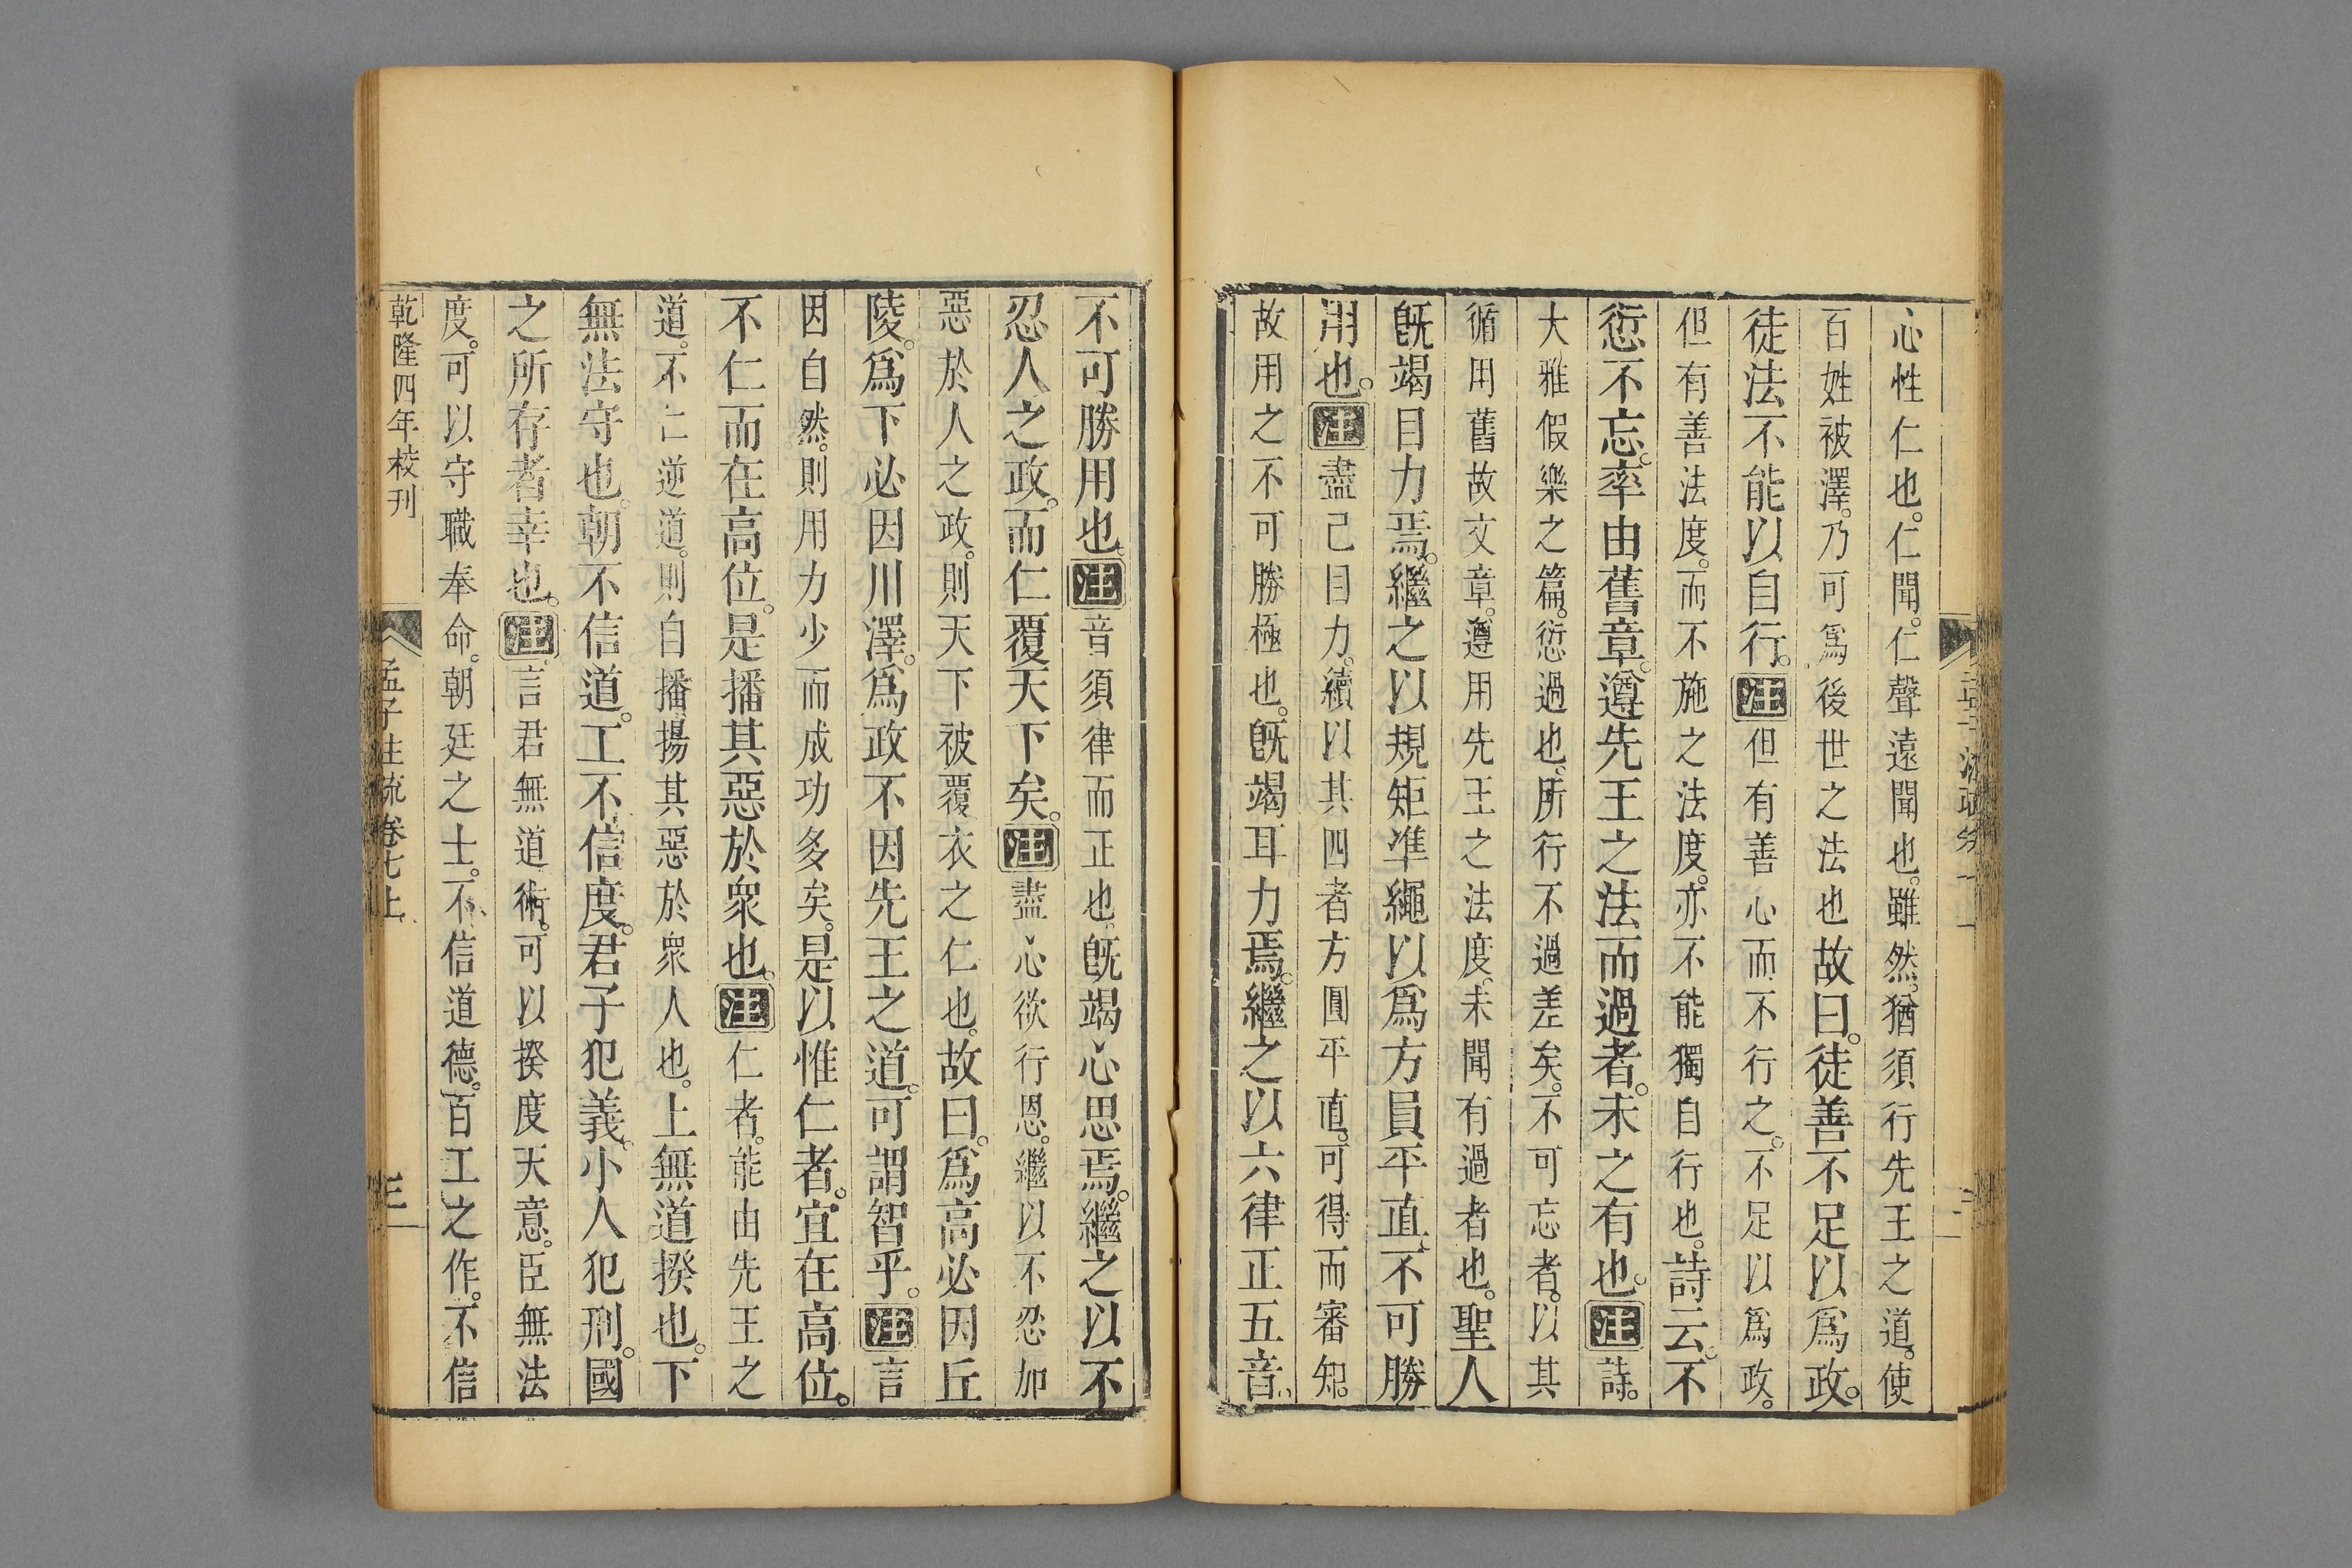 心性仁也。仁聞。仁聲遠聞也。雖然。猶須行先王之道。使
百姓被澤。乃可爲後世之法也故曰。徒善不足以爲政。
徒法不能以自行。注但有善心而不行之。不足以爲政。
但有善法度。而不施之法度。亦不能獨自行也。詩云。不
愆不忘。率由舊章。遵先王之法而過者。未之有也。注詩。
大雅假樂之篇。愆過也。所行不過差矣。不可忘者。以其
循用舊故文章。遵用先王之法度。未聞有過者也。聖人
旣竭目力焉。繼之以規矩準繩以爲方員平直。不可勝
用也。注盡己目力。續以其四者方圓平直。可得而審知。
故用之不可勝極也。旣竭耳力焉。繼之以六律正五音。
不可勝用也。注音須律而正也。旣竭心思焉。繼之以不
忍人之政。而仁覆天下矣。注盡心欲行恩。繼以不忍加
惡於人之政。則天下被覆衣之仁也。故曰。爲高必因丘
陵。爲下必因川澤。爲政不因先王之道。可謂智乎。注言
因自然。則用力少而成功多矣。是以惟仁者。宜在高位。
不仁而在高位。是播其惡於衆也。注仁者。能由先王之
道。不仁逆道。則自播揚其惡於衆人也。上無道揆也。下
無法守也。朝不信道。工不信度。君子犯義。小人犯刑。國
之所存者幸也。注言君無道術。可以揆度天意。臣無法
度。可以守職奉命。朝廷之士。不信道德。百工之作。不信
乾隆四年校刊
孟子注疏卷七上
三